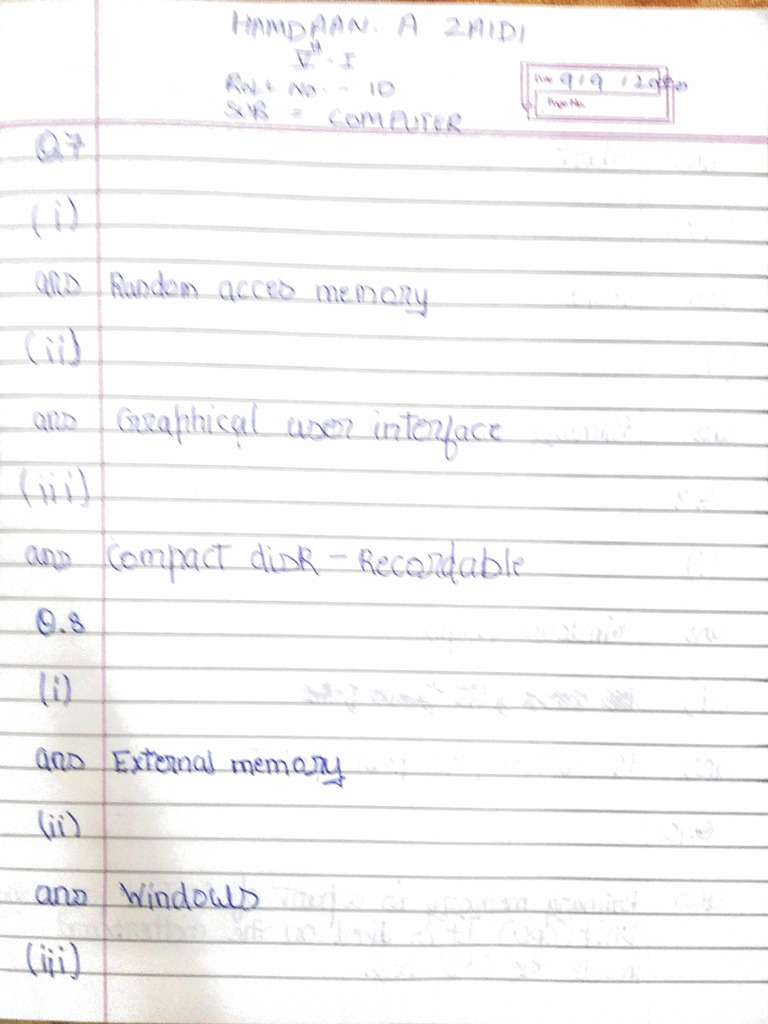 HAMDAAN. A ZAIDI
Vth - I
Roll No. - 10
SUB = COMPUTER
Page No.
Q7
(i)
ans Random acces memory
(ii)
ans Graphical user interface
(iii)
ans Compact disk - Recordable
Q.8
(i)
ans External memory
(ii)
ans Windows
(iii)